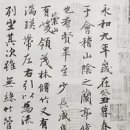 永和九年歲在癸丑暮春
于會稽山陰之蘭亭脩
也羣賢畢至少長咸
有崇領茂林脩竹
湍暎帶左右引以為流
列坐其次雖無絲竹管